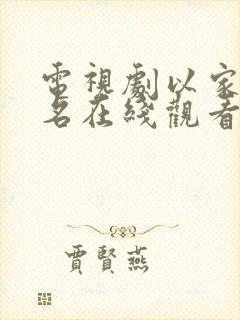 電視劇以家
名在綫觀看
賈賢燕